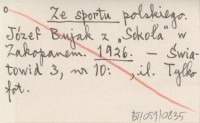 Ze sportu polskiego.
Józef Bujak z „Sokoła" w
Zakopanem. 1926. — Świa-
towid 3, nr 10: , il. Tylko
fot.